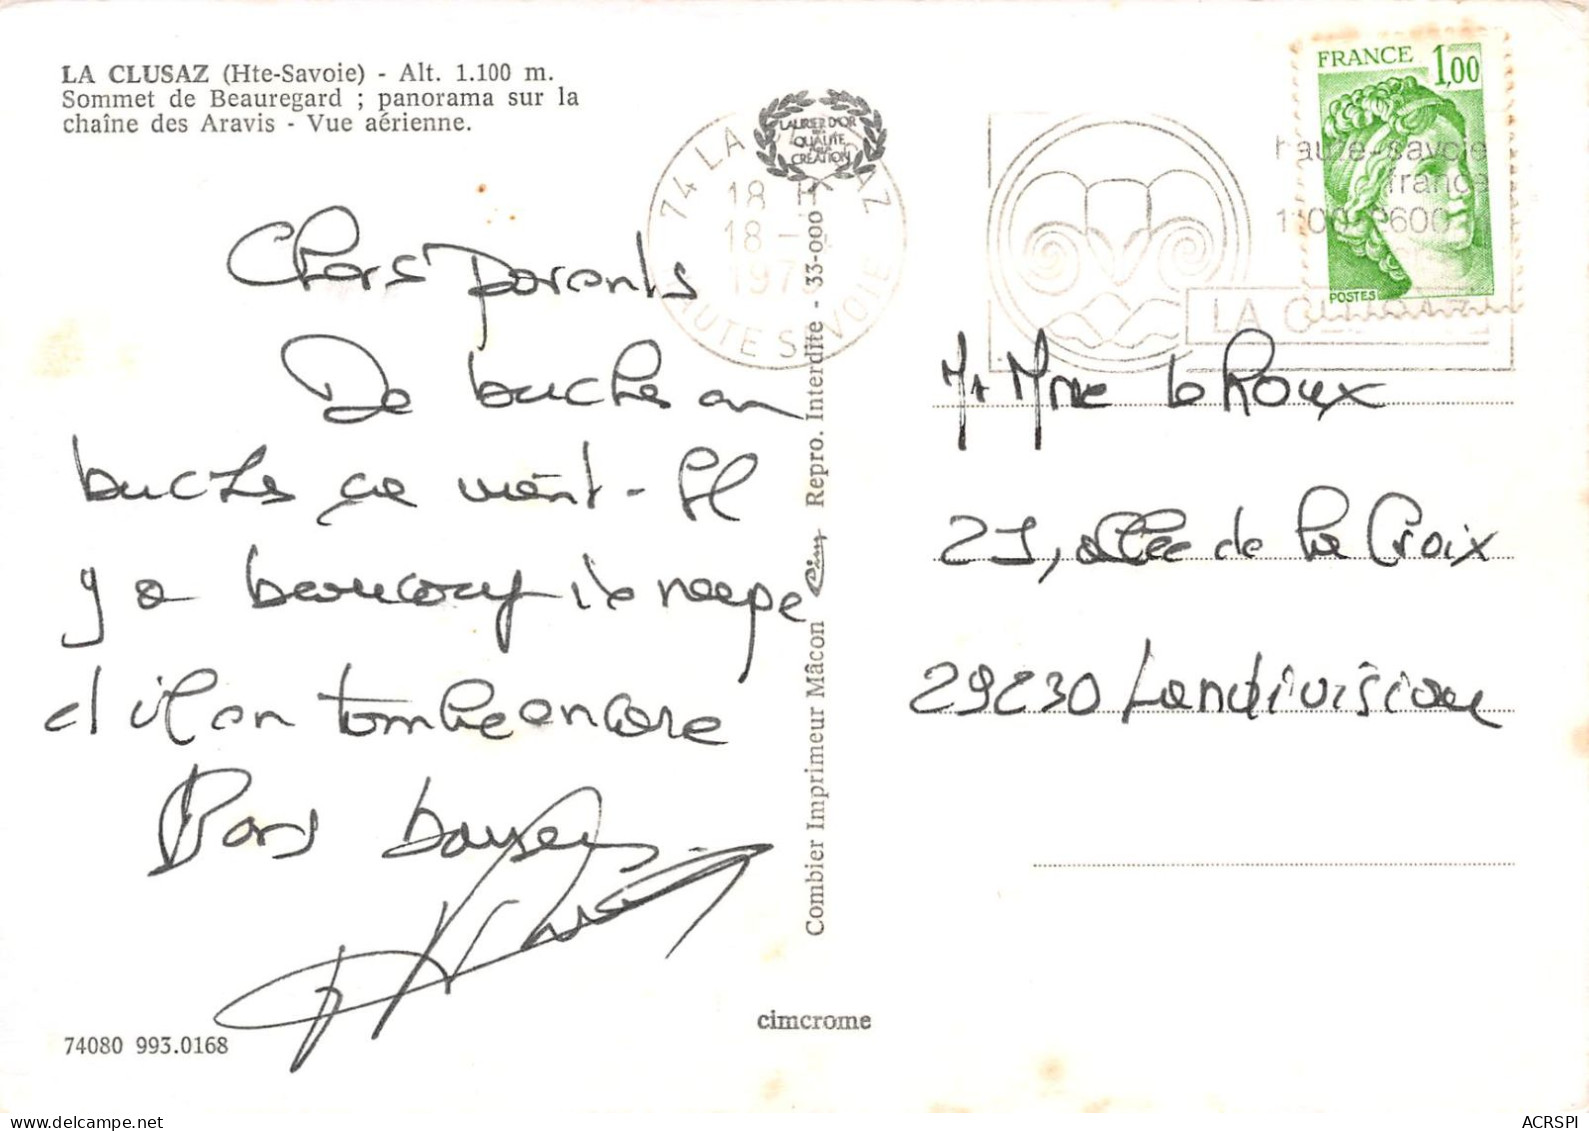 LA CLUSAZ (Hte-Savoie) - Alt. 1.100 m.
Sommet de Beauregard ; panorama sur la
chaîne des Aravis - Vue aérienne.
Chers parents
De buches en
buches ça vient - Il
y a beaucoup de neige
et il en tombe encore
Bons baisers
74080 993.0168
Combier Imprimeur Mâcon Cim Repro. Interdite - 33-000
LAURIER D'OR
DE LA
QUALITÉ
CRÉATION
74 LA AZ
18 H
18 -
197
HAUTE SAVOIE
haute-savoie
france
1100 2600
LA CLUSAZ
FRANCE 1,00
POSTES
Mr Mme Le Roux
21, allée de la Croix
29230 Landivisiau
cimcrome
ACRSPI